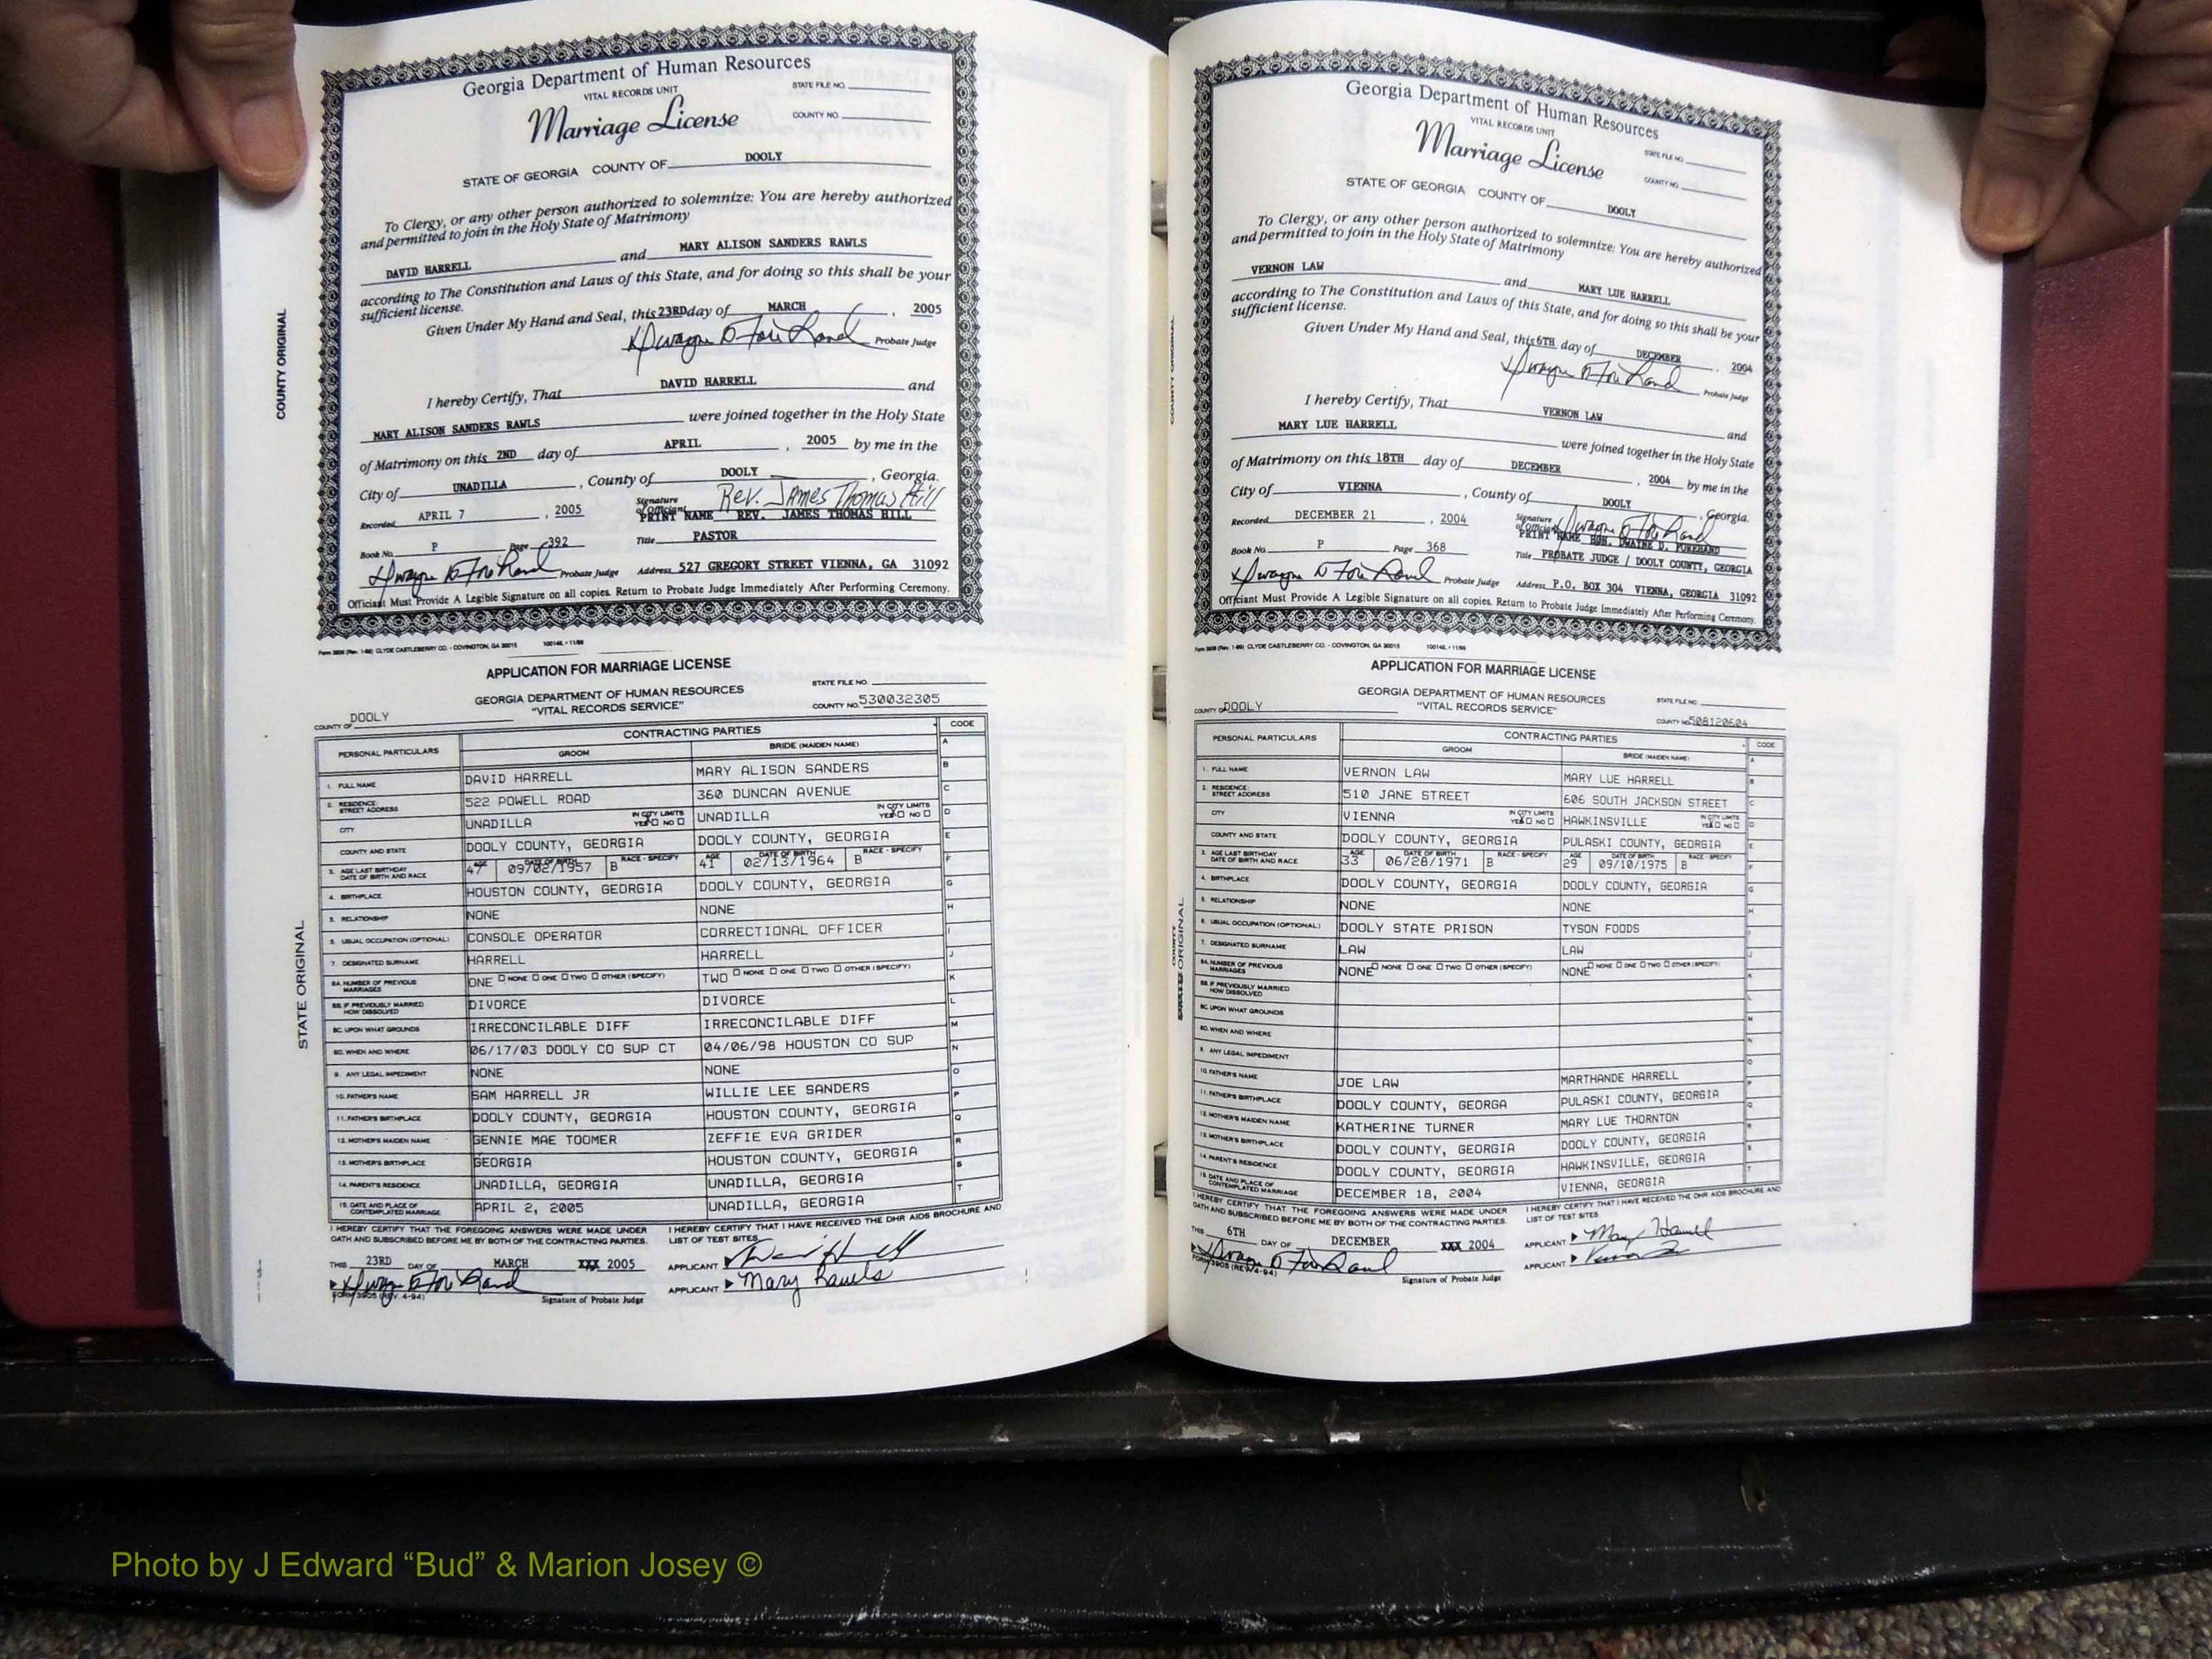 Georgia Department of Human Resources
VITAL RECORDS UNIT
STATE FILE NO.
Marriage License
COUNTY NO.
STATE OF GEORGIA COUNTY OF DOOLY
To Clergy, or any other person authorized to solemnize: You are hereby authorized
and permitted to join in the Holy State of Matrimony
DAVID HARRELL and MARY ALISON SANDERS RAWLS
according to The Constitution and Laws of this State, and for doing so this shall be your
sufficient license.
Given Under My Hand and Seal, this 23RD day of MARCH, 2005
Probate Judge
I hereby Certify, That DAVID HARRELL and
MARY ALISON SANDERS RAWLS were joined together in the Holy State
of Matrimony on this 2ND day of APRIL, 2005 by me in the
City of UNADILLA, County of DOOLY, Georgia.
Signature of Officiant Rev. James Thomas Hill
Recorded APRIL 7, 2005 PRINT NAME REV. JAMES THOMAS HILL
Book No. P Page 392 Title PASTOR
Probate Judge Address 527 GREGORY STREET VIENNA, GA 31092
Officiant Must Provide A Legible Signature on all copies. Return to Probate Judge Immediately After Performing Ceremony.
COUNTY ORIGINAL
CLYDE CASTLEBERRY CO. - COVINGTON, GA 30015
APPLICATION FOR MARRIAGE LICENSE
GEORGIA DEPARTMENT OF HUMAN RESOURCES
"VITAL RECORDS SERVICE"
STATE FILE NO.
COUNTY NO. 530032305
COUNTY OF DOOLY
PERSONAL PARTICULARS CONTRACTING PARTIES CODE
GROOM BRIDE (MAIDEN NAME) A
1. FULL NAME DAVID HARRELL MARY ALISON SANDERS B
2. RESIDENCE: STREET ADDRESS 522 POWELL ROAD 360 DUNCAN AVENUE C
CITY UNADILLA IN CITY LIMITS YES NO UNADILLA IN CITY LIMITS YES NO D
COUNTY AND STATE DOOLY COUNTY, GEORGIA DOOLY COUNTY, GEORGIA E
3. AGE LAST BIRTHDAY DATE OF BIRTH AND RACE AGE 47 DATE OF BIRTH 09/02/1957 RACE - SPECIFY B AGE 41 DATE OF BIRTH 02/13/1964 RACE - SPECIFY B F
4. BIRTHPLACE HOUSTON COUNTY, GEORGIA DOOLY COUNTY, GEORGIA G
5. RELATIONSHIP NONE NONE H
6. USUAL OCCUPATION (OPTIONAL) CONSOLE OPERATOR CORRECTIONAL OFFICER I
7. DESIGNATED SURNAME HARRELL HARRELL J
8A. NUMBER OF PREVIOUS MARRIAGES ONE NONE ONE TWO OTHER (SPECIFY) TWO NONE ONE TWO OTHER (SPECIFY) K
8B. IF PREVIOUSLY MARRIED HOW DISSOLVED DIVORCE DIVORCE L
8C. UPON WHAT GROUNDS IRRECONCILABLE DIFF IRRECONCILABLE DIFF M
8D. WHEN AND WHERE 06/17/03 DOOLY CO SUP CT 04/06/98 HOUSTON CO SUP N
9. ANY LEGAL IMPEDIMENT NONE NONE O
10. FATHER'S NAME SAM HARRELL JR WILLIE LEE SANDERS P
11. FATHER'S BIRTHPLACE DOOLY COUNTY, GEORGIA HOUSTON COUNTY, GEORGIA Q
12. MOTHER'S MAIDEN NAME GENNIE MAE TOOMER ZEFFIE EVA GRIDER R
13. MOTHER'S BIRTHPLACE GEORGIA HOUSTON COUNTY, GEORGIA S
14. PARENT'S RESIDENCE UNADILLA, GEORGIA UNADILLA, GEORGIA T
15. DATE AND PLACE OF CONTEMPLATED MARRIAGE APRIL 2, 2005 UNADILLA, GEORGIA
I HEREBY CERTIFY THAT THE FOREGOING ANSWERS WERE MADE UNDER
OATH AND SUBSCRIBED BEFORE ME BY BOTH OF THE CONTRACTING PARTIES.
I HEREBY CERTIFY THAT I HAVE RECEIVED THE DHR AIDS BROCHURE AND
LIST OF TEST SITES.
THIS 23RD DAY OF MARCH XXX 2005
APPLICANT
APPLICANT Mary Rawls
FORM 3905 (REV. 4-94) Signature of Probate Judge
STATE ORIGINAL
Georgia Department of Human Resources
VITAL RECORDS UNIT
STATE FILE NO.
Marriage License
COUNTY NO.
STATE OF GEORGIA COUNTY OF DOOLY
To Clergy, or any other person authorized to solemnize: You are hereby authorized
and permitted to join in the Holy State of Matrimony
VERNON LAW and MARY LUE HARRELL
according to The Constitution and Laws of this State, and for doing so this shall be your
sufficient license.
Given Under My Hand and Seal, this 6TH day of DECEMBER, 2004
Probate Judge
I hereby Certify, That VERNON LAW and
MARY LUE HARRELL were joined together in the Holy State
of Matrimony on this 18TH day of DECEMBER, 2004 by me in the
City of VIENNA, County of DOOLY, Georgia.
Signature of Officiant
Recorded DECEMBER 21, 2004 PRINT NAME HON. DWAYNE D. FOREHAND
Book No. P Page 368 Title PROBATE JUDGE / DOOLY COUNTY, GEORGIA
Probate Judge Address P.O. BOX 304 VIENNA, GEORGIA 31092
Officiant Must Provide A Legible Signature on all copies. Return to Probate Judge Immediately After Performing Ceremony.
COUNTY ORIGINAL
CLYDE CASTLEBERRY CO. - COVINGTON, GA 30015
APPLICATION FOR MARRIAGE LICENSE
GEORGIA DEPARTMENT OF HUMAN RESOURCES
"VITAL RECORDS SERVICE"
STATE FILE NO.
COUNTY NO. 508120604
COUNTY OF DOOLY
PERSONAL PARTICULARS CONTRACTING PARTIES CODE
GROOM BRIDE (MAIDEN NAME) A
1. FULL NAME VERNON LAW MARY LUE HARRELL B
2. RESIDENCE: STREET ADDRESS 510 JANE STREET 606 SOUTH JACKSON STREET C
CITY VIENNA IN CITY LIMITS YES NO HAWKINSVILLE IN CITY LIMITS YES NO D
COUNTY AND STATE DOOLY COUNTY, GEORGIA PULASKI COUNTY, GEORGIA E
3. AGE LAST BIRTHDAY DATE OF BIRTH AND RACE AGE 33 DATE OF BIRTH 06/28/1971 RACE - SPECIFY B AGE 29 DATE OF BIRTH 09/10/1975 RACE - SPECIFY B F
4. BIRTHPLACE DOOLY COUNTY, GEORGIA DOOLY COUNTY, GEORGIA G
5. RELATIONSHIP NONE NONE H
6. USUAL OCCUPATION (OPTIONAL) DOOLY STATE PRISON TYSON FOODS I
7. DESIGNATED SURNAME LAW LAW J
8A. NUMBER OF PREVIOUS MARRIAGES NONE NONE ONE TWO OTHER (SPECIFY) NONE NONE ONE TWO OTHER (SPECIFY) K
8B. IF PREVIOUSLY MARRIED HOW DISSOLVED L
8C. UPON WHAT GROUNDS M
8D. WHEN AND WHERE N
9. ANY LEGAL IMPEDIMENT O
10. FATHER'S NAME JOE LAW MARTHANDE HARRELL P
11. FATHER'S BIRTHPLACE DOOLY COUNTY, GEORGA PULASKI COUNTY, GEORGIA Q
12. MOTHER'S MAIDEN NAME KATHERINE TURNER MARY LUE THORNTON R
13. MOTHER'S BIRTHPLACE DOOLY COUNTY, GEORGIA DOOLY COUNTY, GEORGIA S
14. PARENT'S RESIDENCE DOOLY COUNTY, GEORGIA HAWKINSVILLE, GEORGIA T
15. DATE AND PLACE OF CONTEMPLATED MARRIAGE DECEMBER 18, 2004 VIENNA, GEORGIA
I HEREBY CERTIFY THAT THE FOREGOING ANSWERS WERE MADE UNDER
OATH AND SUBSCRIBED BEFORE ME BY BOTH OF THE CONTRACTING PARTIES.
I HEREBY CERTIFY THAT I HAVE RECEIVED THE DHR AIDS BROCHURE AND
LIST OF TEST SITES.
THIS 6TH DAY OF DECEMBER XXX 2004
APPLICANT Mary Harrell
APPLICANT
FORM 3905 (REV. 4-94) Signature of Probate Judge
ORIGINAL
Photo by J Edward “Bud” & Marion Josey ©